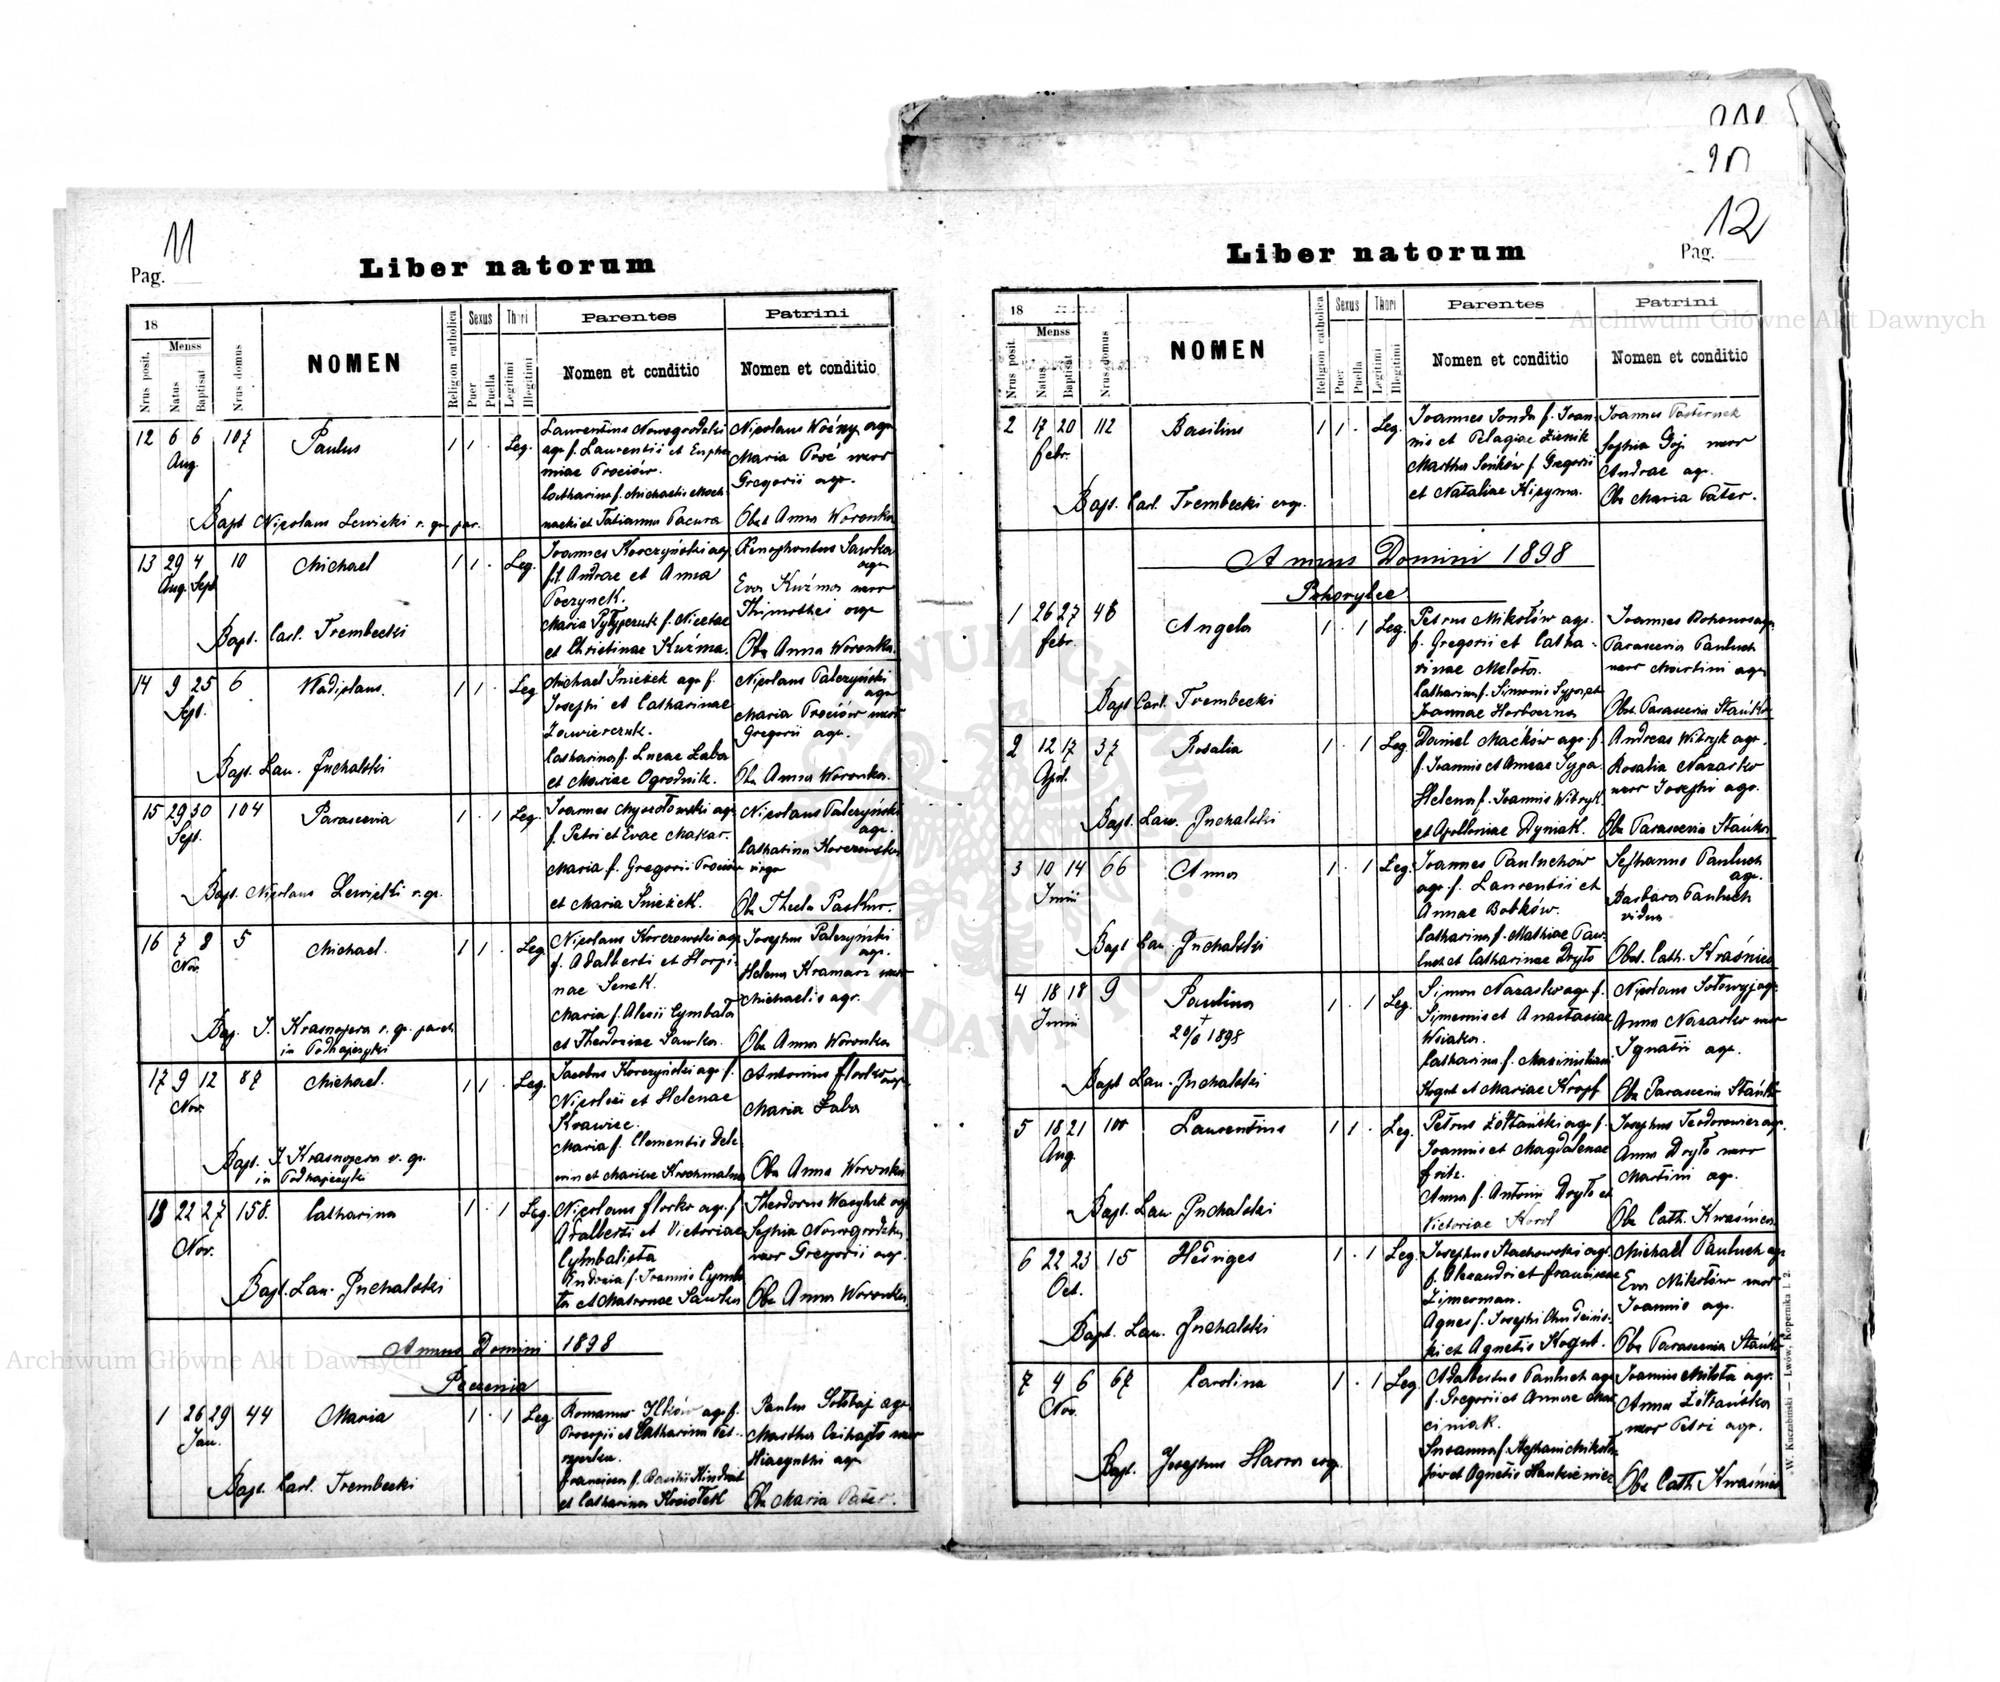 11
Pag.
Liber natorum
18
Menss
Nrus posit.
Natus
Baptisat
Nrus domus
NOMEN
Religion catholica
Sexus
Puer
Puella
Thori
Legitimi
Illegitimi
Parentes
Nomen et conditio
Patrini
Nomen et conditio
12 6 6 107 Paulus 1 1 . Leg.
Aug.
Laurentius Nowogrodzki
agr. f. Laurentii et Euphe
miae Prociów.
Catharina f. Michaelis Moch
nacki et Tatianna Pacura
Nicolaus Woźny agr.
Maria uxor
Gregorii agr.
Obst Anna Woronka
Bapt Nicolaus Lewicki r. gr. par.
13 29 4 10 Michael 1 1 . Leg.
Aug. Sept
Joannes Korczyński agr.
fil Andrae et Anna
Poczynek.
Maria f. Nicetae
et Christinae Kuźma.
Xenophontus Sawka
agr.
Eva Kuźma uxor
Thimothei agr
Obs Anna Woronka.
Bapt. Carl. Trembecki
14 9 25 6 Wladislaus. 1 1 . Leg
Sept.
Michael Śnieżek agr f.
Josephi et Catharinae
Zawierczuk.
Catharina f. Lucae Żaba
et Mariae Ogrodnik.
Nicolaus Palczyński
agr
Maria Prociów uxor
Gregorii agr.
Obs Anna Woronka.
Bapt. Lau. Puchalski
15 29 30 104 Parascevia 1 . 1 Leg.
Sept.
Joannes agr
f. Petri et Evae Makar.
Maria f. Gregorii Prociów
et Maria Śnieżek.
Nicolaus Palczyński
agr.
Catharina Korczowska
virgo
Obs Thecla
Bapt. Nicolaus Lewicki r. gr.
16 7 8 5 Michael. 1 1 . Leg
Nov.
Nicolaus Korczowski agr
f. Adalberti et Horpi
nae Senek.
Maria f. Alexii Cymbała
et Theodoziae Sawka.
Josephus Palczyński
agr.
Helena Kramarz uxor
Michaelis agr.
Obs Anna Woronka
Bap. J. Krasnopera r. gr. paroch
in Podhajczyki
17 9 12 87 Michael. 1 1 . Leg.
Nov.
Jacobus Korczyński agr f.
Nicolai et Helenae
Krawiec.
Maria f. Clementis
et Mariae Krochmalna
Antonius Florko agr.
Maria Żaba
Obs Anna Woronka
Bapt. J. Krasnopera r. gr.
in Podhajczyki
18 22 27 158. Catharina 1 . 1 Leg.
Nov.
Nicolaus Florko agr. f.
Adalberti et Victoriae
Cymbalista
f. Joannis Cymba
ła et Matronae Sawka
Theodorus agr
Sophia Nowogrodzka
uxor Gregorii agr.
Obs Anna Woronka.
Bapt. Lau. Puchalski
Annus Domini 1898
Peczenia
1 26 29 44 Maria 1 . 1 Leg
Jan.
Romanus Ilków agr f.
Procopii et Catharina
Francisca f. Basilii
et Catharina
Paulus agr
Martha uxor
Hiacynthi agr
Obs Maria Pater.
Bapt. Carl. Trembecki
12
Pag.
Liber natorum
18
Menss
Nrus posit.
Natus
Baptisat
Nrus domus
NOMEN
Religion catholica
Sexus
Puer
Puella
Thori
Legitimi
Illegitimi
Parentes
Nomen et conditio
Patrini
Nomen et conditio
2 17 20 112 Basilius 1 1 . Leg.
Febr.
Joannes f. Joan
nis et Pelagiae
Martha f. Gregorii
et Nataliae
Joannes Pasternek
Sophia Goj uxor
Andrae agr.
Obs Maria Pater.
Bapt. Carl. Trembecki
Annus Domini 1898
Pohorylce
1 26 27 48 Angela 1 . 1 Leg.
Febr.
Petrus Mikołów agr.
f. Gregorii et Catha-
rinae Melota.
Catharina f. Simonis
Joannae
Joannes agr.
Parascevia Pauluch
uxor Martini agr
Obst. Parascevia Stańko
Bapt Carl. Trembecki
2 12 17 37 Rosalia 1 . 1 Leg
Apr.
Daniel Maćków agr. f.
f. Joannis et Annae
Helena f. Joannis Witryk
et Apolloniae Dyniak.
Andreas Witryk agr.
Rosalia Nazarko
uxor Josephi agr.
Obs Parascevia Stańko
Bapt. Lau. Puchalski
3 10 14 66 Anna 1 . 1 Leg.
Junii
Joannes Pauluchów
agr. f. Laurentii et
Annae Bobków.
Catharina f. Mathiae Pau
luch et Catharinae Dryło
Sephanus Pauluch
agr.
Barbara Pauluch
vidua
Obst. Cath. Kwaśnica
Bapt Lau. Puchalski
4 18 18 9 Paulina 1 . 1 Leg.
Junii
+
20/6 1898
Simon Nazarko agr. f.
Simeonis et Anastasiae
Wsiaka.
Catharina f. Maximiliani
Kogut et Mariae Kropf
Nicolaus Sołowyj agr.
Anna Nazarko uxor
Ignatii agr.
Obs Parascevia Stańko
Bapt Lau. Puchalski
5 18 21 100 Laurentius 1 1 . Leg.
Aug.
Petrus Żółtański agr f.
Joannis et Magdalenae
Anna f. Antonii Dryło et
Victoriae Korol
Josephus Teodorowicz agr.
Anna Dryło uxor
Martini agr.
Obs Cath. Kwaśnica
Bapt Lau Puchalski
6 22 23 15 Hedviges 1 . 1 Leg.
Oct.
Josephus Stachowski agr.
f. Alexandri et Franciscae
Zimerman.
Agnes f. Josephi
et Agnetis Kogut.
Michael Pauluch agr
Eva Mikołów uxor
Joannis agr.
Obs Parascevia Stańko
Bapt. Lau. Puchalski
7 4 6 67 Carolina 1 . 1 Leg.
Nov.
Adalbertus Pauluch agr
f. Gregorii et Annae Mar
ciniak.
Susanna f. Stephani Mikoła
jów et Agnetis Hankiewicz
Joannis agr.
Anna Żółtańska
uxor Petri agr.
Obs Cath Kwaśnica
Bapt. Josephus
W. Kuczabiński — Lwów, Kopernika l. 2.
Archiwum Główne Akt Dawnych
Archiwum Główne Akt Dawnych